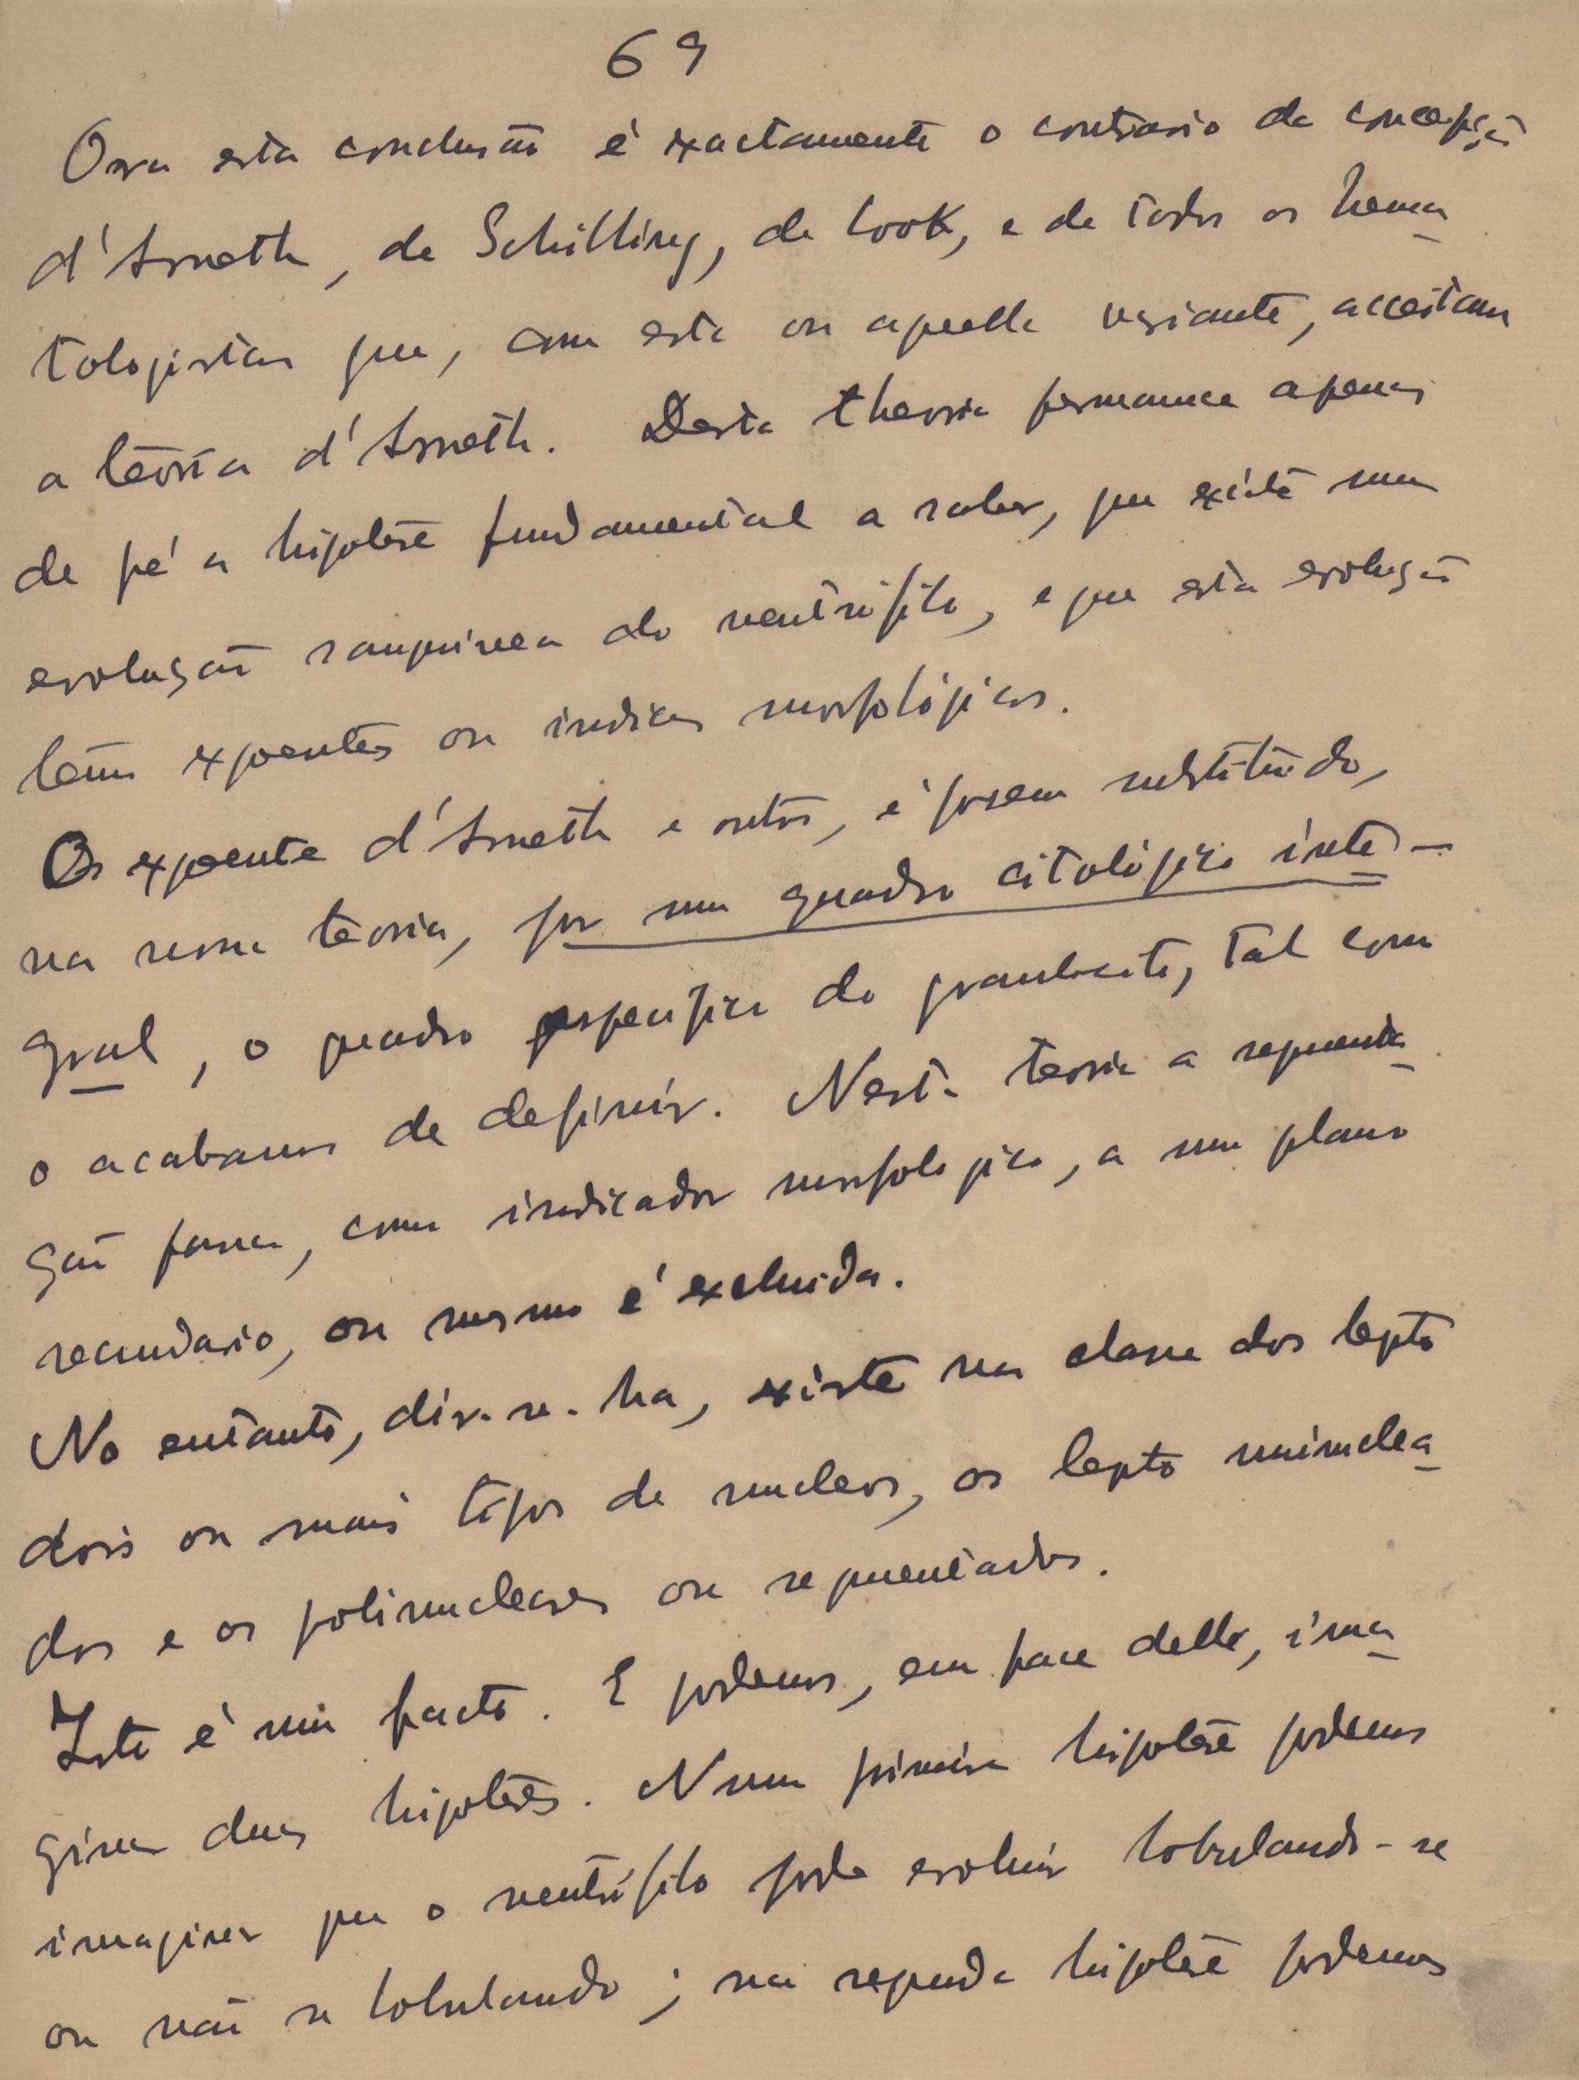 69
Ora esta conclusão é exactamente o contrario da concepção
d'Arneth, de Schilling, de Cook, e de todos os hema
tologistas que, com esta ou aquella variante, acceitam
a teoria d'Arneth. Desta theoria permanece apenas
de pé a hipotese fundamental a saber, que existe uma
evolução sanguinea do neutrófilo, e que esta evolução
tem expoentes ou indices morfológicos.
Os expoente d'Arneth e outros, é porem substituido,
na nossa teoria, por um quadro citológico inte-
gral, o quadro especifico do granulocito, tal como
o acabamos de definir. Nesta teoria a segmenta
ção passa, como indicador morfologico, a um plano
secundario, ou mesmo é excluida.
No entanto, dir-se-ha, existe na classe dos lepto
dois ou mais tipos de nucleos, os lepto uninuclea
dos e os polinucleares ou segmentados.
Isto é um facto. E podemos, em face delle, ima
ginar duas hipoteses. Numa primeira hipotese podemos
imaginar que o neutrófilo pode evoluir lobulando-se
ou não se lobulando; na segunda hipotese podemos